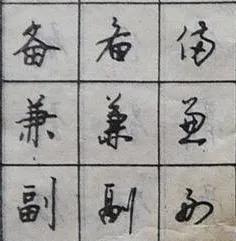 备 备 備
兼 兼 兼
副 副 副